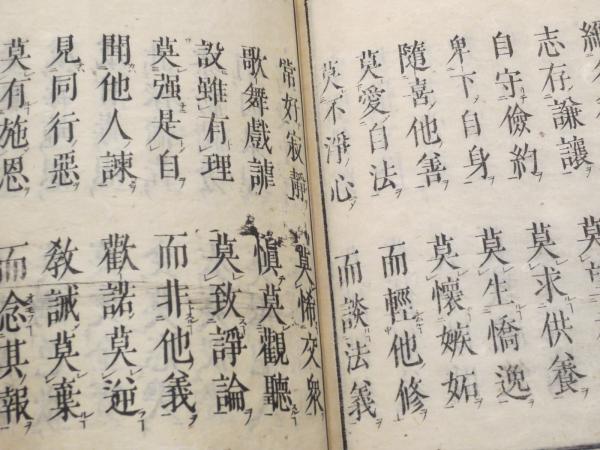 志存謙讓　莫
自守儉約　莫求供養
卑下自身　莫生憍逸
隨喜他善　莫懷嫉妬
莫愛自法　而輕他修
莫不淨心　而談法義
常好寂靜　莫悕交衆
歌舞戲謔　愼莫觀聽
設雖有理　莫致諍論
莫强是自　而非他義
聞他人諫　歡諾莫逆
見同行惡　教誡莫棄
莫有施恩　而念其報